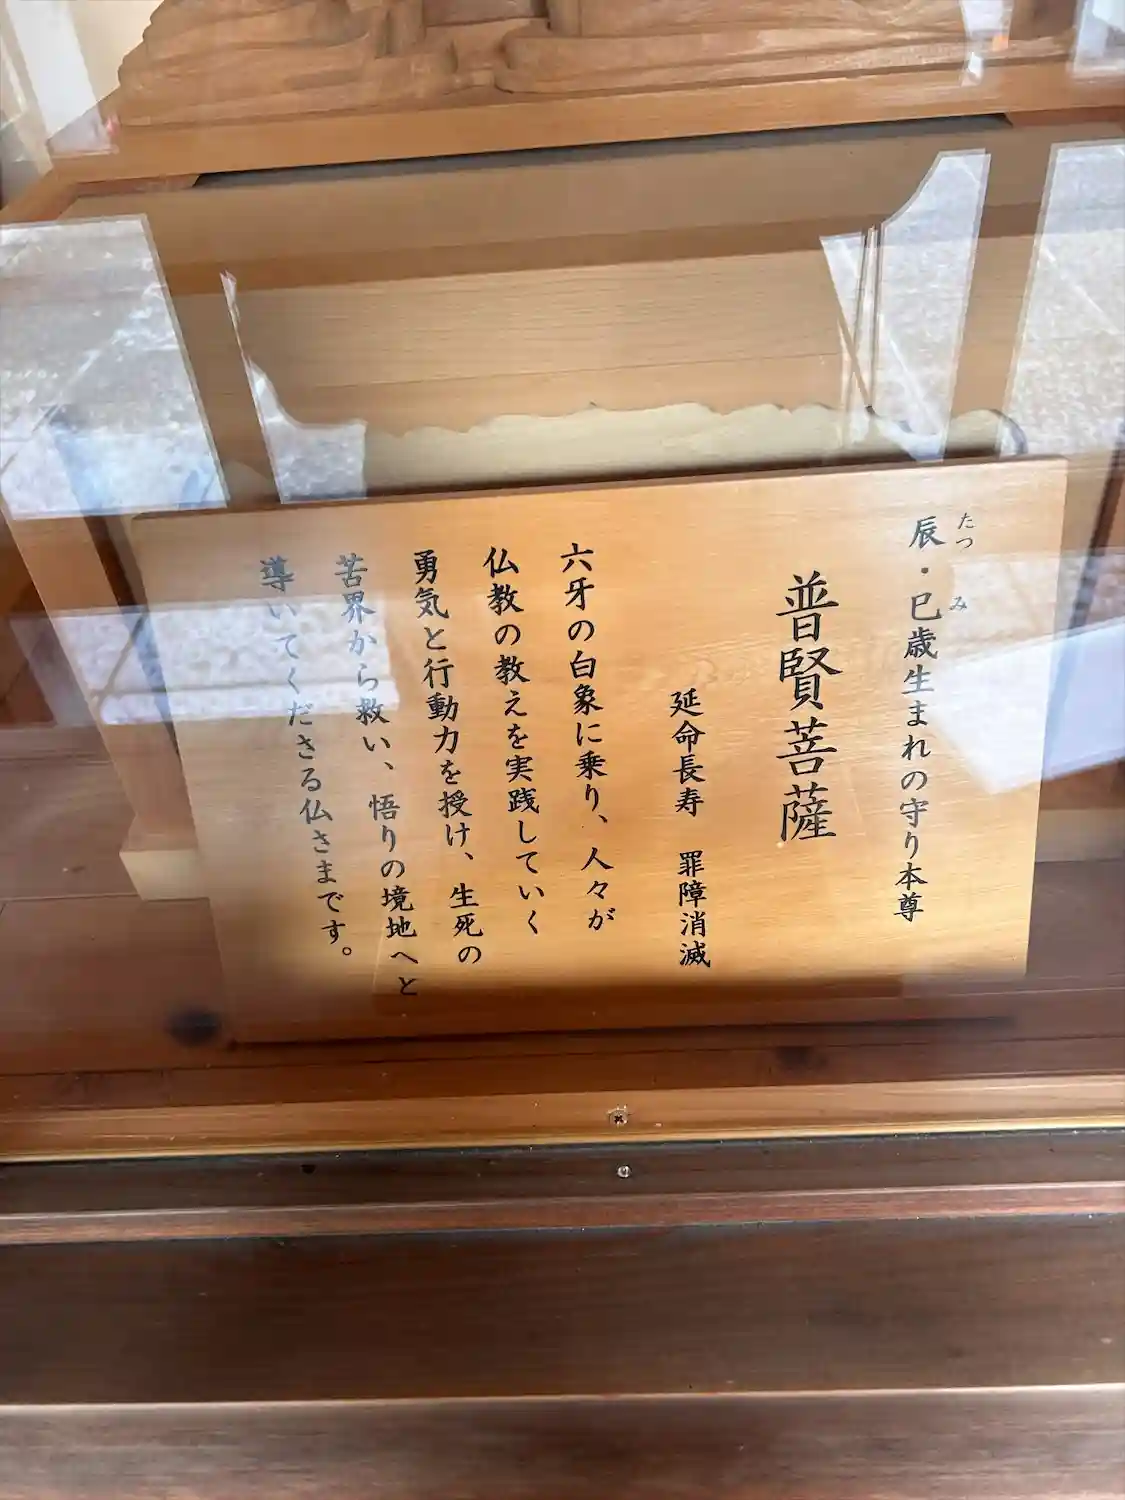 たつ み
辰・巳歳生まれの守り本尊
普賢菩薩
延命長寿 罪障消滅
六牙の白象に乗り、人々が
仏教の教えを実践していく
勇気と行動力を授け、生死の
苦界から救い、悟りの境地へと
導いてくださる仏さまです。